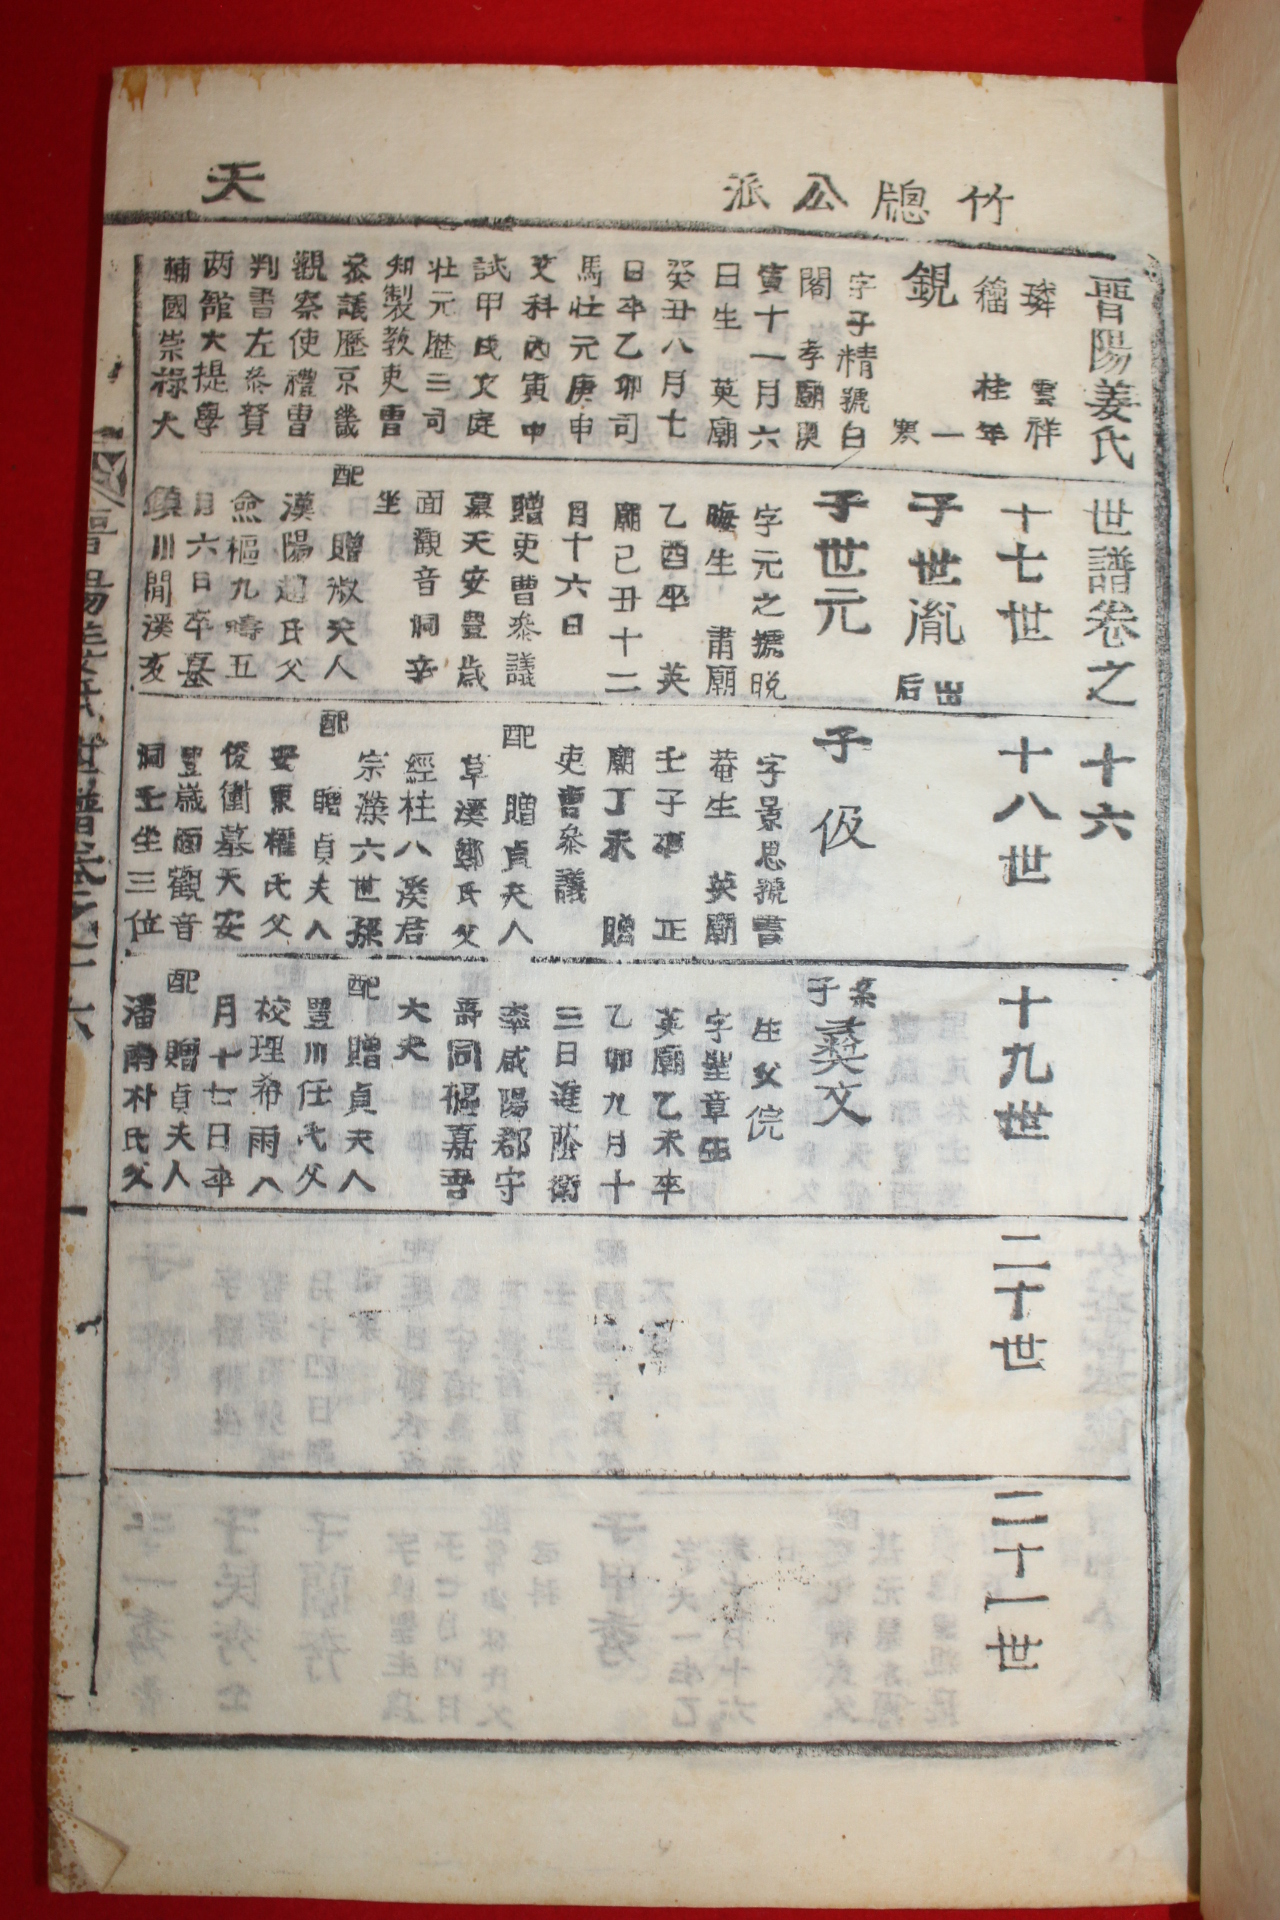 竹牕公派
天
晋陽姜氏世譜卷之十六
雲祥
桂年
鋧 一
寒
字子精號白
閣 孝廟庚
寅十一月六
日生 英廟
癸丑八月七
日卒乙卯司
馬壮元庚申
文科丙寅中
試甲戌文庭
壮元歷三司
知製教吏曹
叅議歷京畿
觀察使禮曹
判書左叅賛
两舘大提學
輔國崇祿大
十七世
子世胤 出后
子世元
字元之號晚
晦生 肅廟
乙酉卒 英
廟己丑十二
月十六日
贈吏曹叅議
墓天安豊歲
面觀音洞辛
坐
配 贈淑夫人
漢陽趙氏父
僉樞九疇五
月六日卒墓
鎮川閒溪亥
十八世
子伋
字景思號書
菴生 英廟
壬子卒 正
廟丁未 贈
吏曹叅議
配 贈貞夫人
草溪鄭氏父
經柱八溪君
宗濼六世孫
配 贈貞夫人
安東權氏父
俊衡墓天安
豊歲面觀音
洞壬坐三位
十九世
系子彛文
生父俒
字聖章生
英廟乙未卒
乙卯九月十
三日進蔭衛
率咸陽郡守
壽同樞嘉善
大夫
配 贈貞夫人
豊川任氏父
校理希雨八
月十七日卒
配 贈貞夫人
潘南朴氏父
二十世
二十一世
晋陽姜氏世譜卷之十六
一